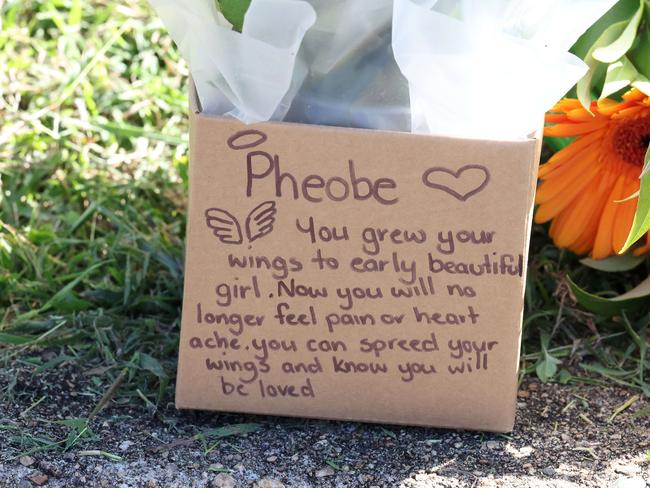 Pheobe
You grew your
wings to early beautiful
girl. Now you will no
longer feel pain or heart
ache. you can spreed your
wings and know you will
be loved